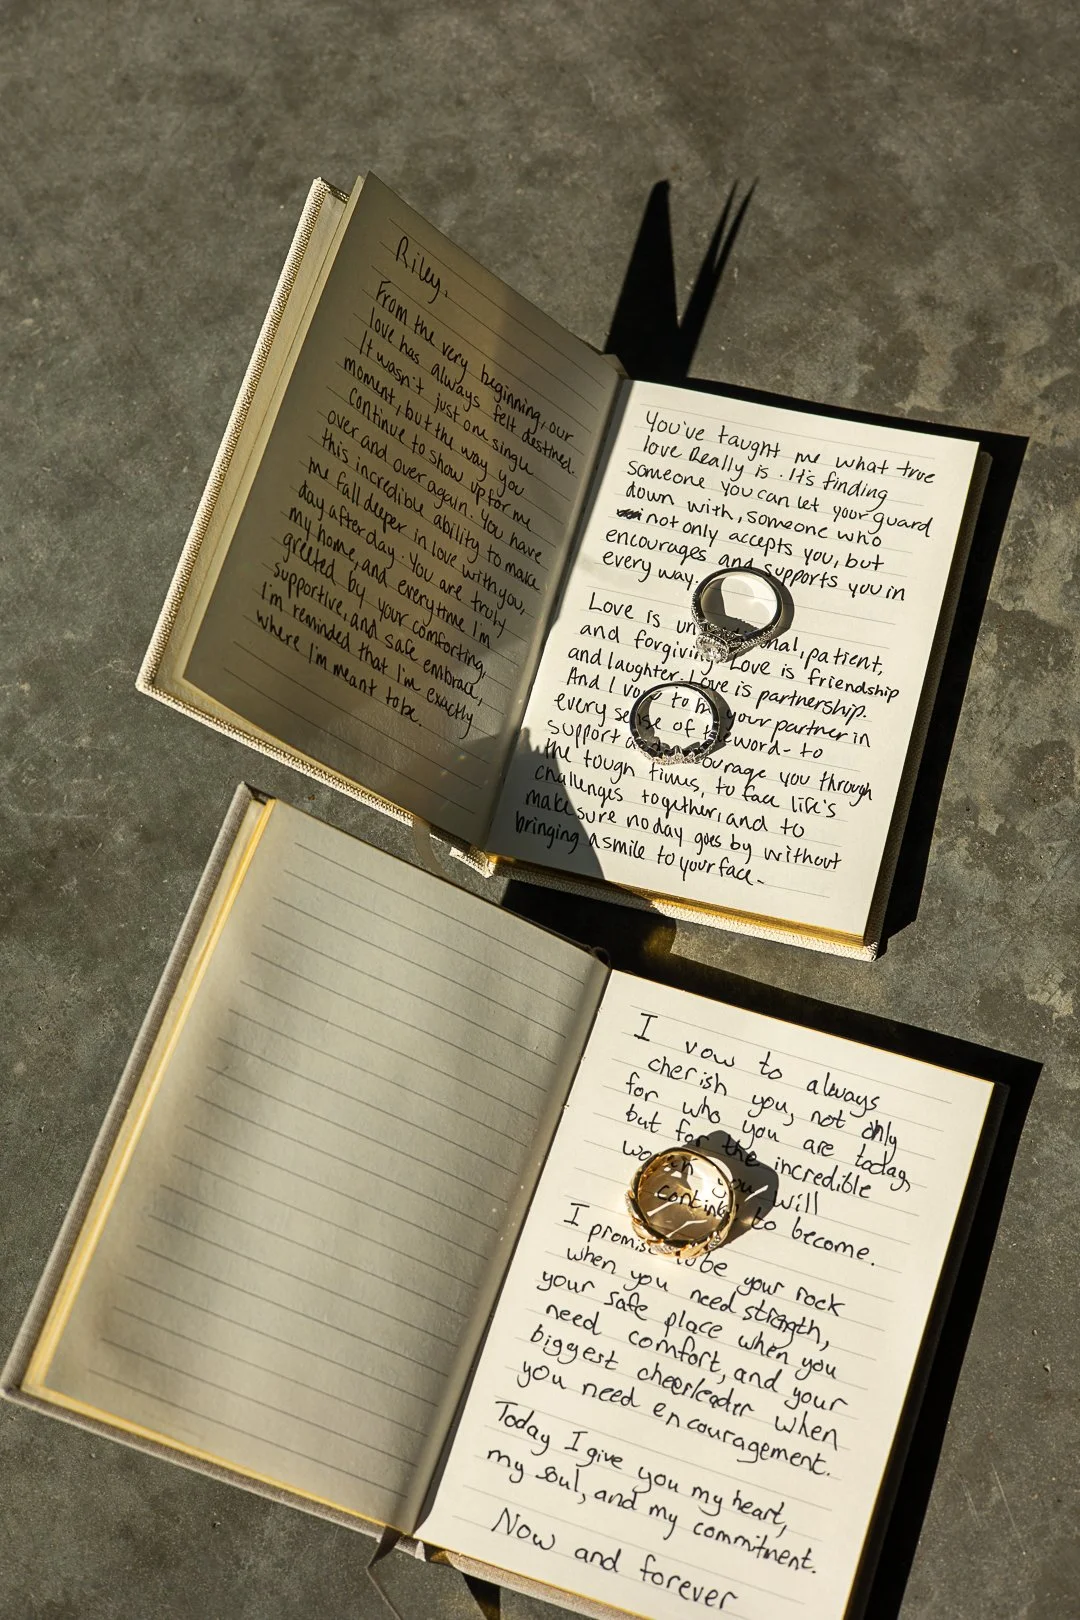 Riley,
From the very beginning, our
love has always felt destined.
It wasn't just one single
moment, but the way you
continue to show up for me
over and over again. You have
this incredible ability to make
me fall deeper in love with you,
day after day. You are truly
my home, and everytime I'm
greeted by your comforting,
supportive, and safe embrace,
I'm reminded that I'm exactly
where I'm meant to be.
You've taught me what true
love Really is. It's finding
someone you can let your guard
down with, someone who
not only accepts you, but
encourages and supports you in
every way.
Love is patient,
and forgiving. Love is friendship
and laughter. Love is partnership.
And I vow to be your partner in
every sense of the word - to
support and encourage you through
the tough times, to face life's
challenges together, and to
make sure no day goes by without
bringing a smile to your face.
I vow to always
cherish you, not only
for who you are today,
but for the incredible
you will
continue to become.
I promise to be your rock
when you need strength,
your safe place when you
need comfort, and your
biggest cheerleader when
you need encouragement.
Today I give you my heart,
my soul, and my commitment.
Now and forever